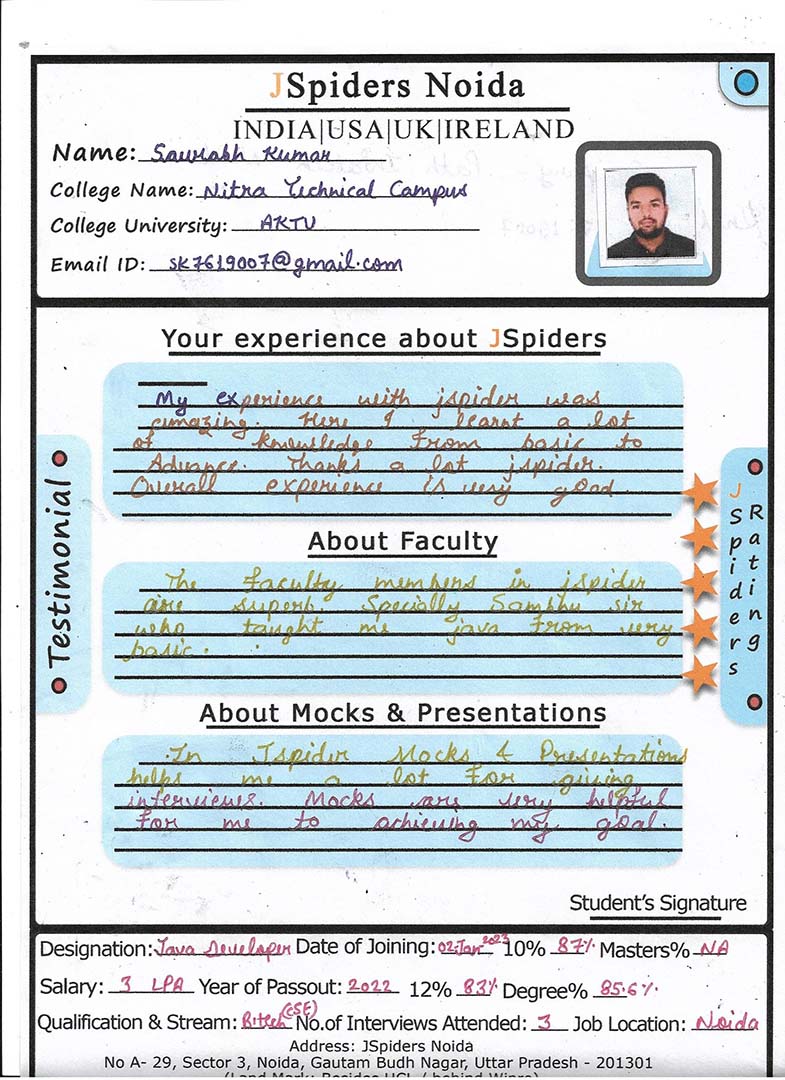 JSpiders Noida
INDIA|USA|UK|IRELAND
Name: Saurabh Kumar
College Name: Nitra Technical Campus
College University: AKTU
Email ID: SK7619007@gmail.com
Your experience about JSpiders
My experience with jspider was
amazing. Here I learnt a lot
of knowledge from basic to
Advance. Thanks a lot jspider.
Overall experience is very good.
About Faculty
The faculty members in jspider
are superb. Specially Sambhu sir
who taught me java from very
basic.
About Mocks & Presentations
In Jspider Mocks & Presentations
helps me a lot for giving
interviews. Mocks are very helpful
for me to achieving my goal.
Testimonial
JSpiders
Ratings
Student's Signature
Designation: Java Developer Date of Joining: 02-Jan 2023 10% 87% Masters% NA
Salary: 3 LPA Year of Passout: 2022 12% 83% Degree% 85.6%
Qualification & Stream: B.tech (CSE) No.of Interviews Attended: 3 Job Location: Noida
Address: JSpiders Noida
No A- 29, Sector 3, Noida, Gautam Budh Nagar, Uttar Pradesh - 201301
(Land Mark: Besides HCL / behind Wipro)